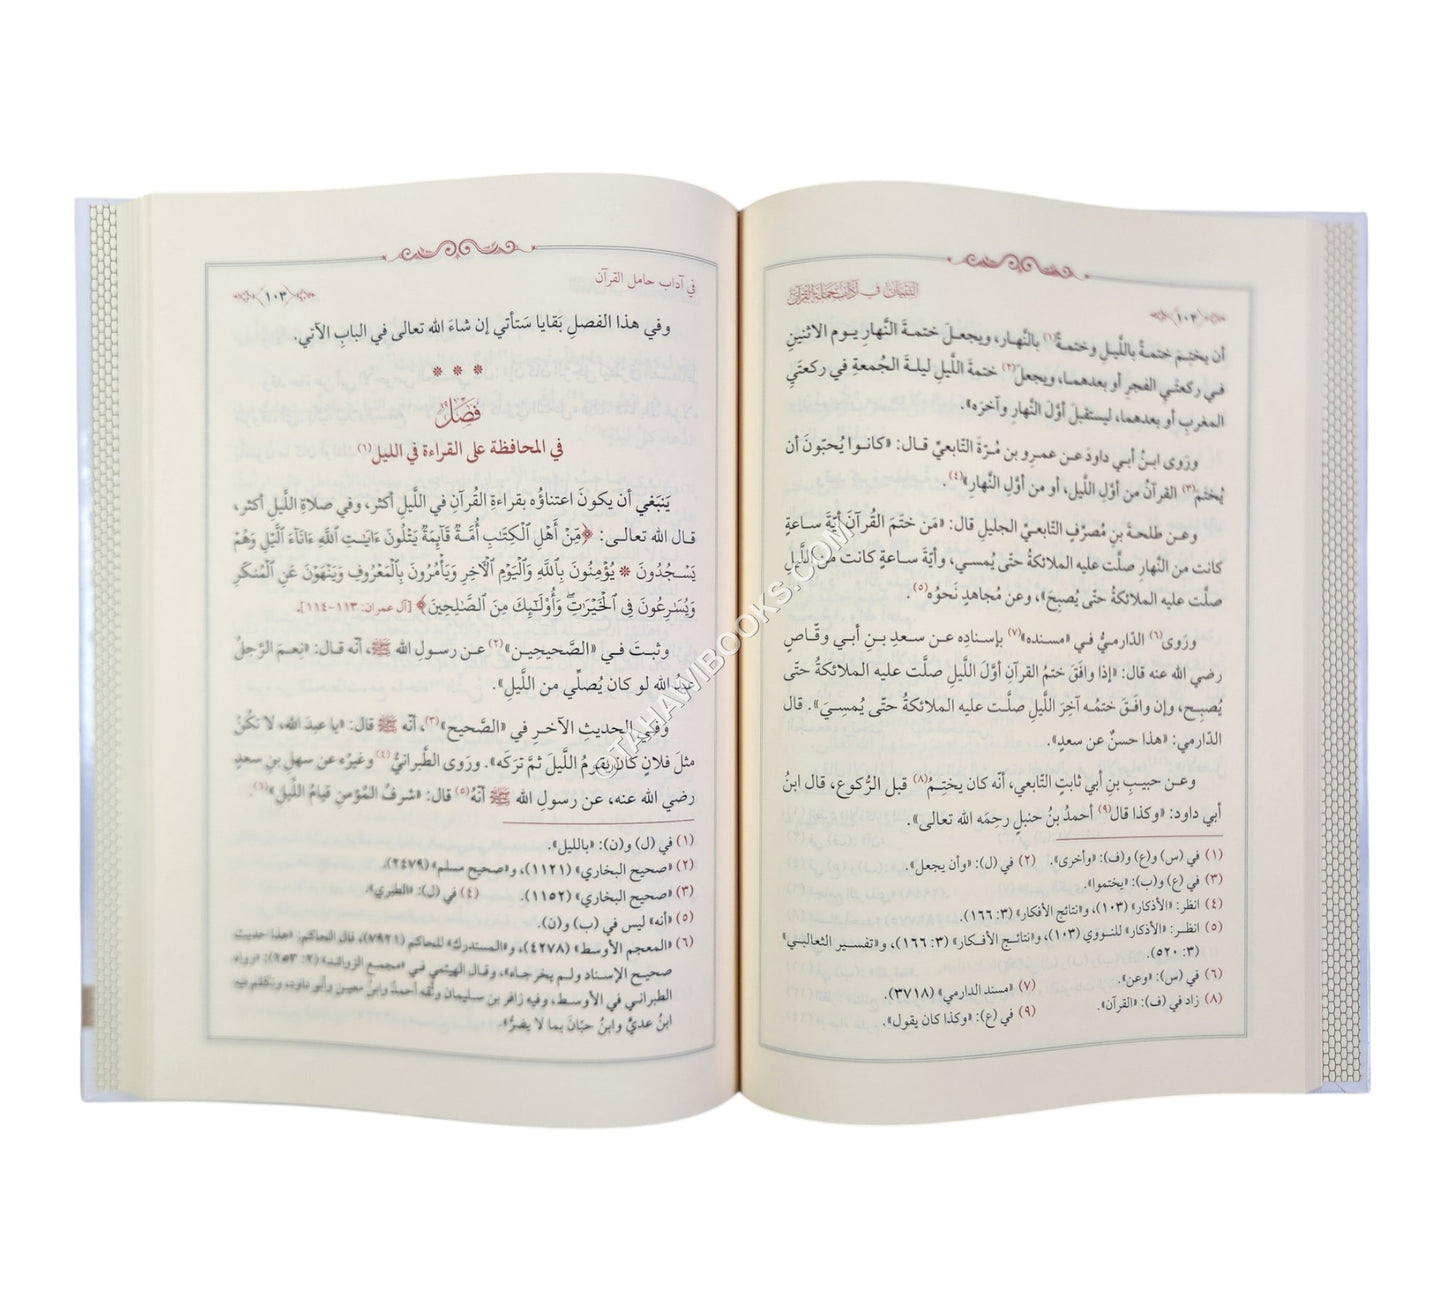 التبيان في آداب حملة القرآن
١٠٢
أن يختِمَ ختمةً بالليلِ وختمةً(١) بالنَّهار، ويجعلَ ختمةَ النَّهارِ يوم الاثنينِ
في ركعتَي الفجرِ أو بعدهما، ويجعلَ(٢) ختمةَ اللَّيلِ ليلةَ الجُمعةِ في ركعتَيِ
المغربِ أو بعدهما، ليستقبلَ أوَّلَ النَّهارِ وآخرَه».
وروى ابنُ أبي داودَ عن عمرِو بن مُرّةَ التّابعيِّ قال: «كانوا يُحبّونَ أن
يُختَمَ(٣) القرآنُ من أوَّلِ الليل، أو من أوَّلِ النَّهارِ»(٤).
وعن طلحةَ بنِ مُصرِّفٍ التّابعيِّ الجليلِ قال: «مَن ختَمَ القُرآنَ أيّةَ ساعةٍ
كانت من النَّهارِ صلَّت عليه الملائكةُ حتّى يُمسي، وأيّةَ ساعةٍ كانت من اللَّيلِ
صلَّت عليه الملائكةُ حتّى يُصبِحَ»، وعن مُجاهدٍ نَحوُه(٥).
وروى(٦) الدّارميُّ في «مسنده»(٧) بإسنادِه عن سعدِ بنِ أبي وقّاصٍ
رضي الله عنه قال: «إذا وافَقَ ختمُ القرآنِ أوَّلَ اللَّيلِ صلَّت عليه الملائكةُ حتّى
يُصبِح، وإن وافَقَ ختمُه آخِرَ اللَّيلِ صلَّت عليه الملائكةُ حتّى يُمسِيَ». قال
الدّارمي: «هذا حسنٌ عن سعدٍ».
وعن حبيبِ بنِ أبي ثابتٍ التّابعي، أنّه كان يختِمُ(٨) قبل الرُّكوع، قال ابنُ
أبي داود: «وكذا قال(٩) أحمدُ بنُ حنبلٍ رحِمَه الله تعالى».
(١) في (س) و(ع) و(ف): «وأخرى». (٢) في (ل): «وأن يجعل».
(٣) في (ع) و(ب): «يختموا».
(٤) انظر: «الأذكار» (١٠٣)، و«نتائج الأفكار» (٣: ١٦٦).
(٥) انظر: «الأذكار» للنووي (١٠٣)، و«نتائج الأفكار» (٣: ١٦٦)، و«تفسير الثعالبي»
(٣: ٥٢٠).
(٦) في (س): «وعن». (٧) «مسند الدارمي» (٣٧١٨).
(٨) زاد في (ف): «القرآن». (٩) في (ع): «وكذا كان يقول».
في آداب حامل القرآن
١٠٣
وفي هذا الفصلِ بَقايا سَتأتي إن شاءَ الله تعالى في البابِ الآتي.
* * *
فصلٌ
في المحافظة على القراءة في الليل(١)
يَنبَغي أن يكونَ اعتناؤُه بقراءةِ القُرآنِ في اللَّيلِ أكثر، وفي صلاةِ اللَّيلِ أكثر،
قال الله تعالى: ﴿مِّنْ أَهْلِ ٱلْكِتَٰبِ أُمَّةٌ قَآئِمَةٌ يَتْلُونَ ءَايَٰتِ ٱللَّهِ ءَانَآءَ ٱلَّيْلِ وَهُمْ
يَسْجُدُونَ * يُؤْمِنُونَ بِٱللَّهِ وَٱلْيَوْمِ ٱلْءَاخِرِ وَيَأْمُرُونَ بِٱلْمَعْرُوفِ وَيَنْهَوْنَ عَنِ ٱلْمُنكَرِ
وَيُسَٰرِعُونَ فِى ٱلْخَيْرَٰتِۖ وَأُو۟لَٰٓئِكَ مِنَ ٱلصَّٰلِحِينَ﴾ [آل عمران: ١١٣-١١٤].
وثبتَ في «الصَّحيحِين»(٢) عن رسولِ الله ﷺ، أنّه قال: «نِعمَ الرَّجلُ
عبدُ الله لو كان يُصلِّي من اللَّيلِ».
وفي الحديثِ الآخرِ في «الصَّحيح»(٣)، أنّه ﷺ قال: «يا عبدَ الله، لا تكُنْ
مثلَ فلانٍ كان يقومُ اللَّيلَ ثمَّ تركَه». وروى الطَّبرانيُّ(٤) وغيرُه عن سهلِ بنِ سعدٍ
رضي الله عنه، عن رسولِ الله ﷺ أنّه(٥) قال: «شرفُ المُؤمنِ قيامُ اللَّيلِ»(٦).
(١) في (ل) و(ن): «بالليل».
(٢) «صحيح البخاري» (١١٢١)، و«صحيح مسلم» (٢٤٧٩).
(٣) «صحيح البخاري» (١١٥٢). (٤) في (ل): «الطبري».
(٥) «أنه» ليس في (ب) و(ن).
(٦) «المعجم الأوسط» (٤٢٧٨)، و«المستدرك» للحاكم (٧٩٢١)، قال الحاكم: «هذا حديث
صحيح الإسناد ولم يخرجاه»، وقال الهيثمي في «مجمع الزوائد» (٢: ٢٥٣): «رواه
الطبراني في الأوسط، وفيه زافر بن سليمان وثّقه أحمدُ وابنُ معين وأبو داود، وتكلم فيه
ابنُ عديٍّ وابنُ حبّانَ بما لا يضرُّ».
©TAHAWIBOOKS.COM